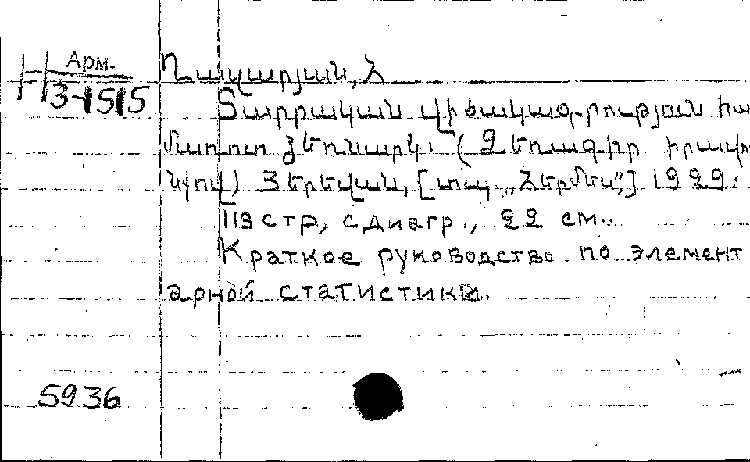 Арм.
Ղազարյան, Հ
3-1515
Տարրական վիճակագրության համ
առոտ ձեռնարկ. (Ձեռագիր իրավու
նքով) Յերեվան, [տպ. „Հերմես”] 1929.
113 стр, с диагр., 22 см.
Краткое руководство по элемент
арной статистике.
5936